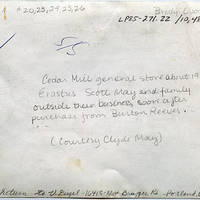 # 20, 23, 24, 25, 26
LP85-271.22 / 10,48
Cedar Mill general store about 19
Erastus Scott May and family
outside their business, soon after
purchase from Burton Reeves.
(Courtesy Clyde May)
Return to
Portland,